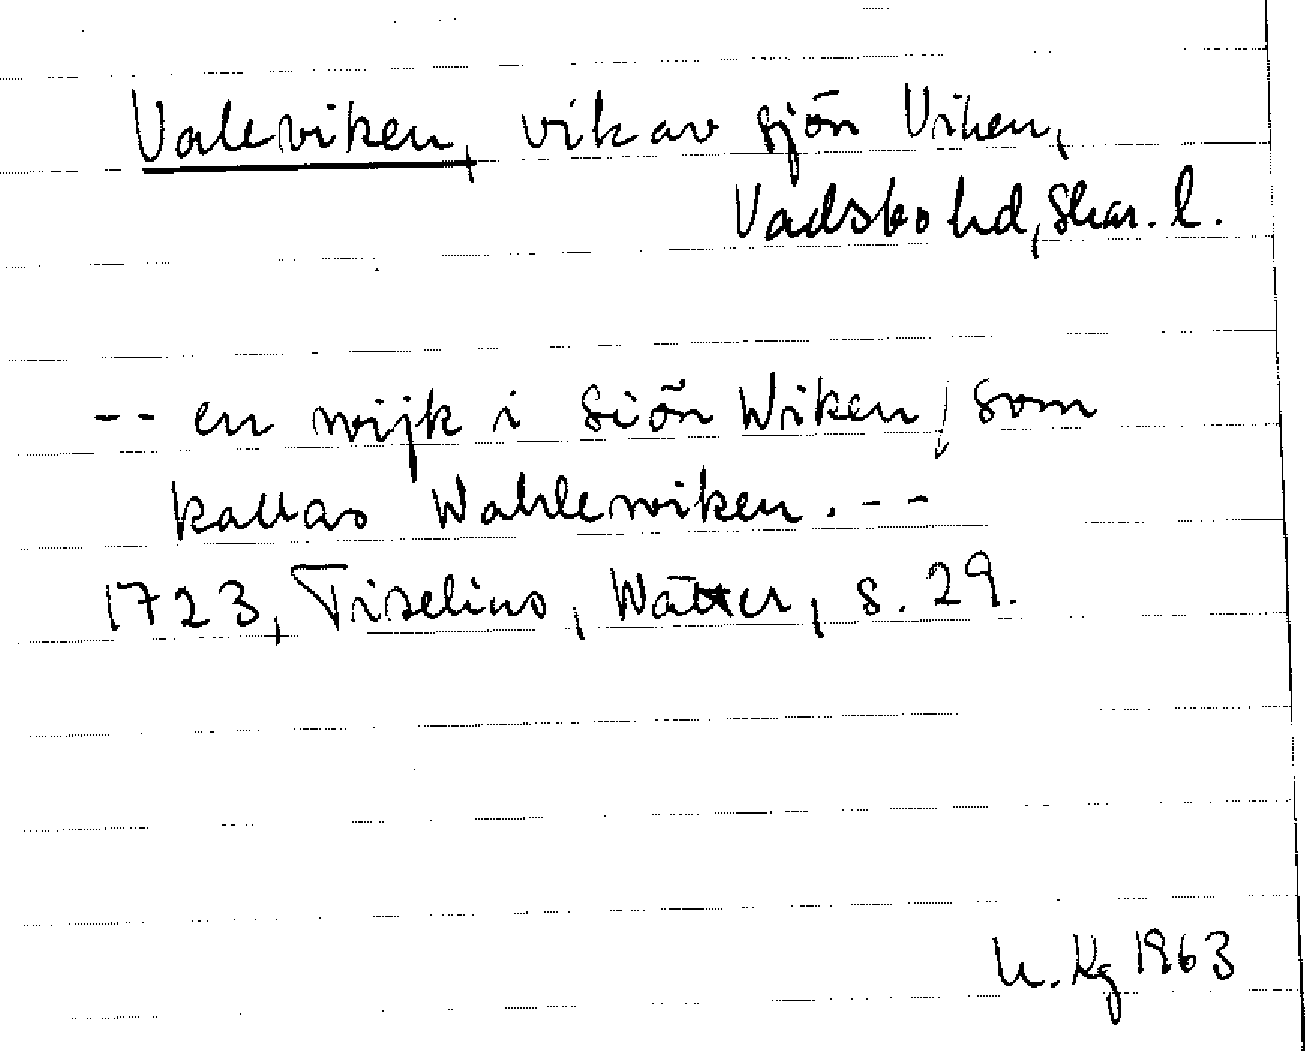 Valeviken, vik av sjön Viken,
Vadsbo hd, Skar. l.
-- en wijk i Siön Wiken, som
kallas Wahlewiken. --
1723, Tiselius, Wätter, s. 29.
Kg 1963